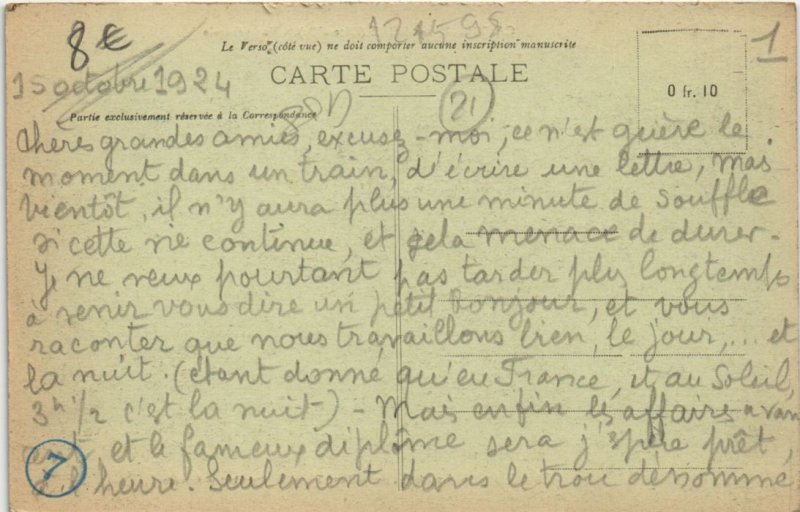 8€
121598
1
Le Verso (côté vue) ne doit comporter aucune inscription manuscrite
15 octobre 1924
CARTE POSTALE
0 fr. 10
21
Partie exclusivement réservée à la Correspondance
chères grandes amies, excusez-moi, ce n'est guère le
moment dans un train, d'écrire une lettre, mais
bientôt, il n'y aura plus une minute de souffle
si cette vie continue, et cela menace de durer -
Je ne veux pourtant pas tarder plus longtemps
à venir vous dire un petit bonjour, et vous
raconter que nous travaillons bien, le jour,... et
la nuit. (étant donné qu'en France, et au Soleil,
3h 1/2 c'est la nuit) - Mais enfin les affaires avan
et le fameux diplôme sera j'espère prêt,
à l'heure. Seulement dans le trou dénommé
7